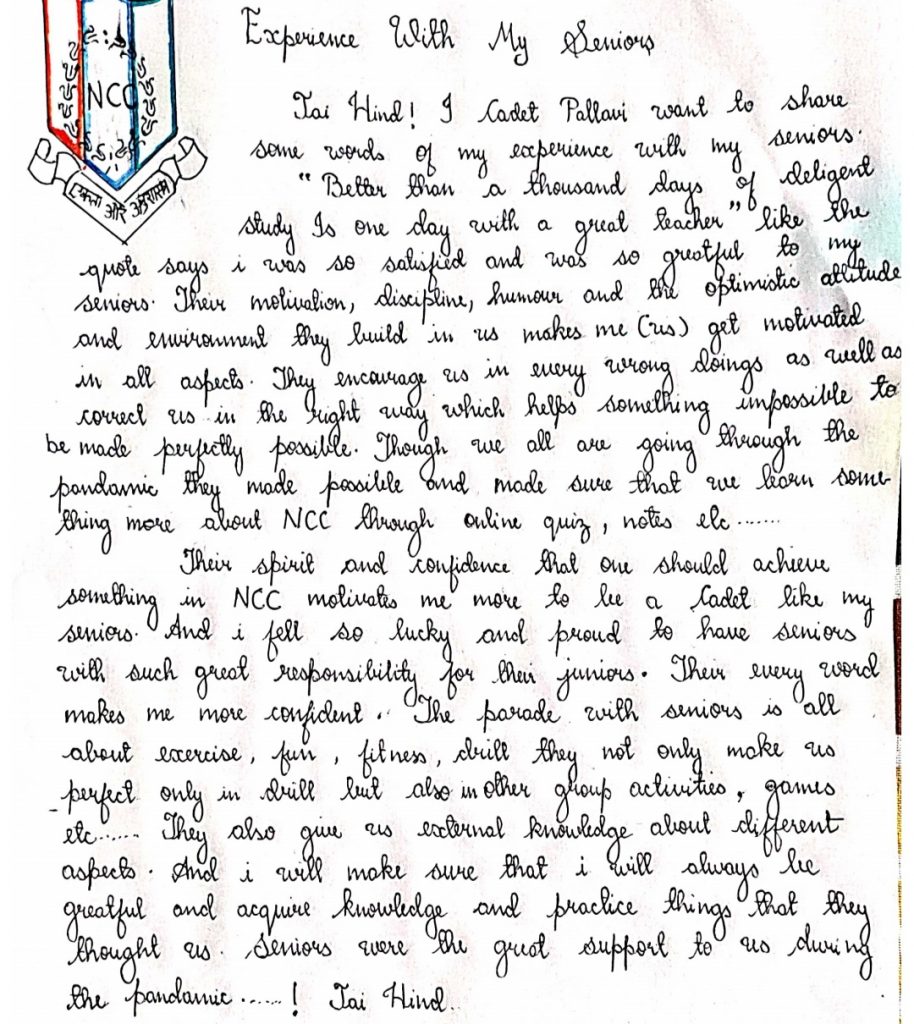 Experience With My Seniors
NCC
एकता और अनुशासन
Jai Hind! I Cadet Pallavi want to share
some words of my experience with my seniors.
"Better than a thousand days of deligent
study Is one day with a great teacher" like the
quote says i was so satisfied and was so greatful to my
seniors. Their motivation, discipline, humour and the optimistic attitude
and environment they build in us makes me (us) get motivated
in all aspects. They encourage us in every wrong doings as well as
correct us in the right way which helps something impossible to
be made perfectly possible. Though we all are going through the
pandamic they made possible and made sure that we learn some-
thing more about NCC through online quiz, notes etc.......
Their spirit and confidence that one should achieve
something in NCC motivates me more to be a Cadet like my
seniors. And i fell so lucky and proud to have seniors
with such great responsibility for their juniors. Their every word
makes me more confident.. The parade with seniors is all
about exercise, fun, fitness, drill they not only make us
perfect only in drill but also in other group activities, games
etc...... They also give us external knowledge about different
aspects. And i will make sure that i will always be
greatful and acquire knowledge and practice things that they
thought us. Seniors were the great support to us during
the pandamic......! Jai Hind..